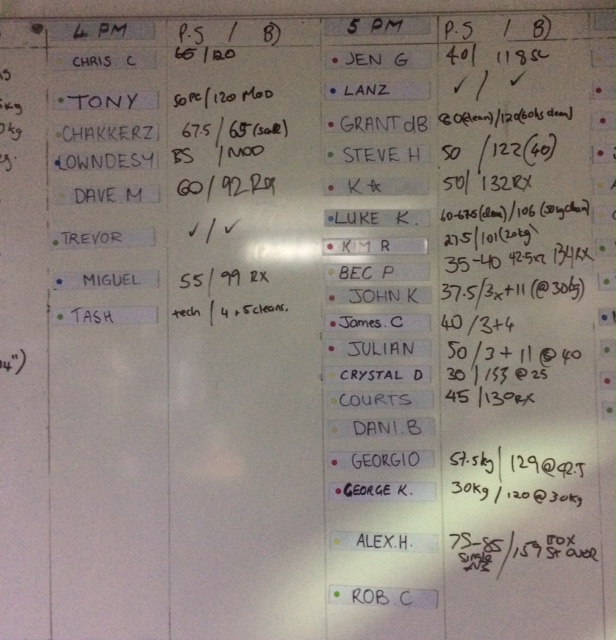 4 PM P.S / B)
CHRIS C 65/120
TONY 50PC/120 MOD
CHAKKERZ 67.5 / 65 (scale)
LOWNDESY BS / MOD
DAVE M 60 / 92 RX
TREVOR ✓ / ✓
MIGUEL 55 / 99 RX
TASH tech / 4 + 5 cleans.
5 PM P.S / B)
JEN G 40/ 118 SC
LANZ ✓ / ✓
GRANT dB 80(clean)/120(60kg clean)
STEVE H 50 / 122 (40)
K☆ 50/ 132RX
LUKE K. 60-67.5 (clean)/106 (50kg clean)
KIM R 27.5/101 (20kg)
BEC P 35-40 42.5 134RX
JOHN K 37.5/3x+11 (@30kg)
James. C 40 /3+4
JULIAN 50 / 3 + 11 @ 40
CRYSTAL D 30 / 153 @ 25
COURTS 45 / 130RX
DANI.B
GEORGIO 57.5kg / 129 @ 42.5
GEORGE K. 30kg / 120 @ 30kg
ALEX.H. 75-85 / 159 BOX
single ST OVER
ROB C
14")